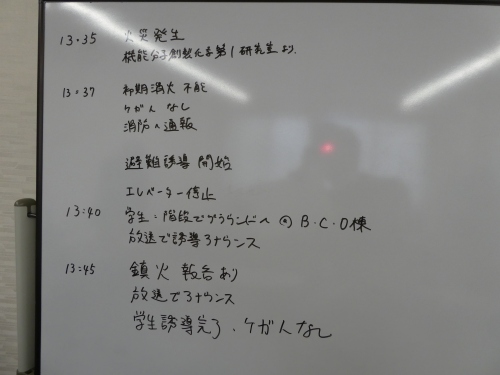 13:35 火災発生
機能分子創製化学第1研究室より.
13:37 初期消火 不能
ケガ人 なし
消防へ通報
避難誘導 開始
エレベーター停止
13:40 学生:階段でグラウンドへ A・B・C・D棟
放送で誘導アナウンス
13:45 鎮火 報告あり
放送でアナウンス
学生誘導完了、ケガ人なし